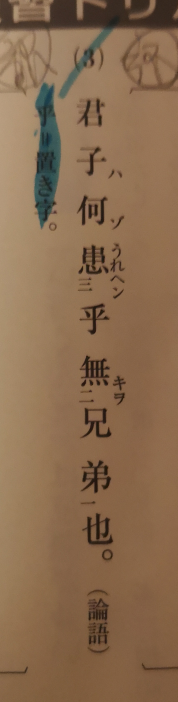 習ドリ
(3) 君子ハ何ゾ患うれヘン三乎無キヲ二兄弟一也。(論語)
乎は置き字。